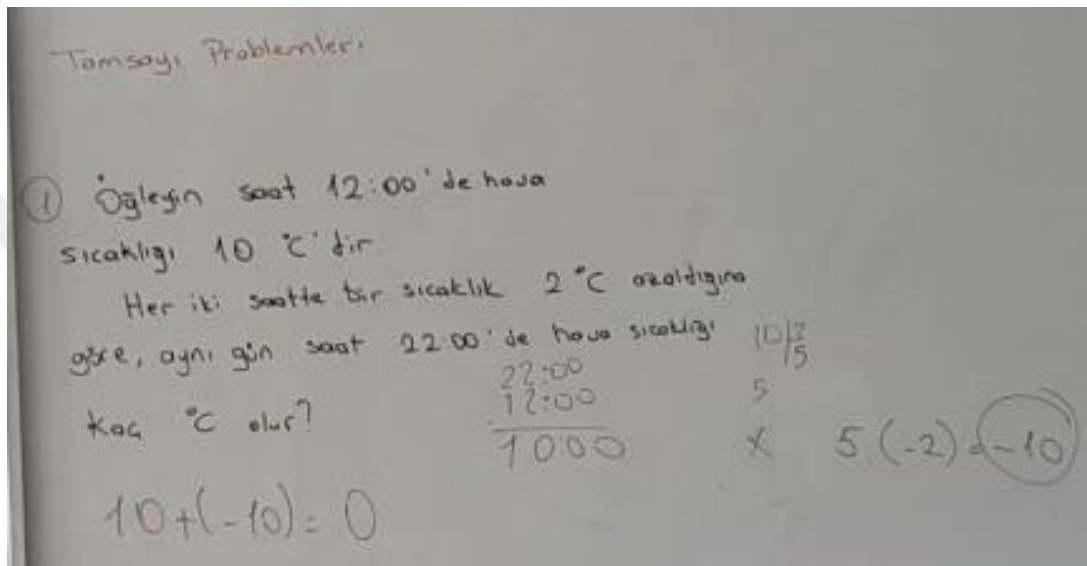 Tamsayı Problemleri
① Öğleyin saat 12:00'de hava
sıcaklığı 10 °C'dir.
Her iki saatte bir sıcaklık 2 °C azaldığına
göre, aynı gün saat 22:00'de hava sıcaklığı
kaç °C olur?
22:00
12:00
10:00
10 2
5
5
x 5.(-2)=-10
10+(-10)=0